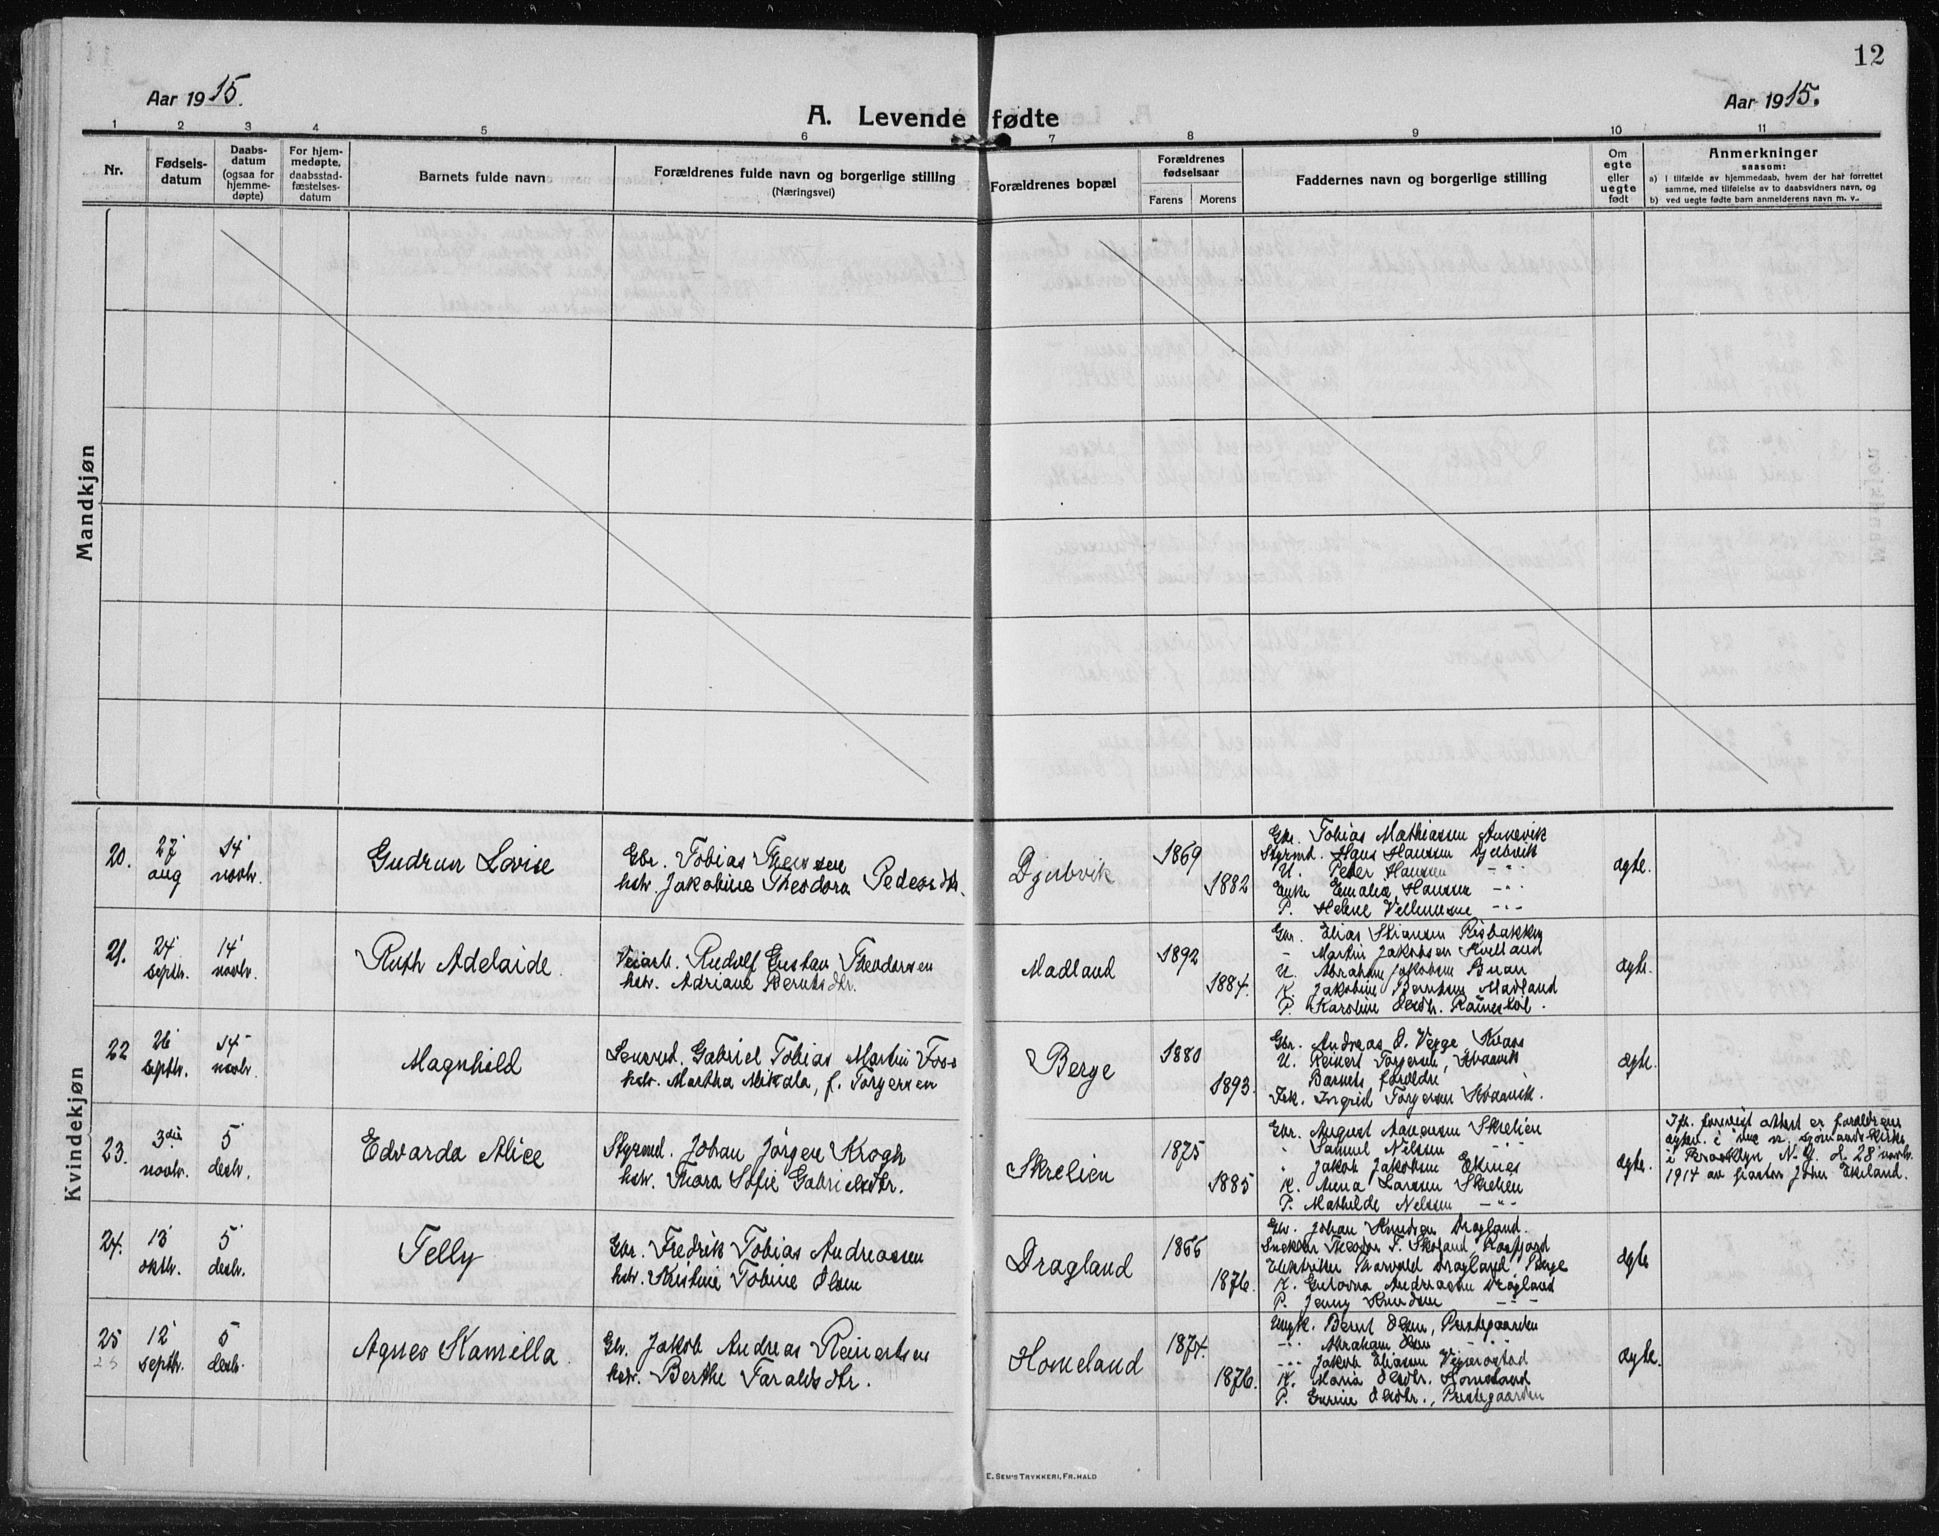 12
Aar 1915.
A. Levende fødte
Aar 1915.
1 2 3 4 5 6 7 8 9 10 11
Nr.
Fødsels-
datum
Daabs-
datum
(ogsaa for
hjemme-
døpte)
For hjem-
medøpte,
daabsstad-
fæstelses-
datum
Barnets fulde navn
Forældrenes fulde navn og borgerlige stilling
(Næringsvei)
Forældrenes bopæl
Forældrenes
fødselsaar
Farens Morens
Faddernes navn og borgerlige stilling
Om
egte
eller
uegte
født
Anmerkninger
saasom:
a) I tilfælde av hjemmedaab, hvem der har forrettet
samme, med tilføielse av to daabsvidners navn, og
b) ved uegte fødte barn anmelderens navn m. v.
Mandkjøn
Kvindekjøn
20.
27
aug
14
novbr.
Gudrun Lovise
Gbr. Tobias
hstr. Jakobine Theodora Pedersdtr.
Djubvik
1869
1882
Gbr. Tobias Mathiassen Aanevik
Styrmd. Hans Hanssen Djubvik
U. Peter Hanssen -"-
Enke Emalia Hanssen -"-
P. Helene -"-
ægte.
21.
24
septbr.
14
novbr.
Ruth Adelaide
Veiarb. Rudolf Gustav Theodorsen
hstr. Adriane Berntsdtr.
Madland
1892
1884.
Gbr. Elias Risbakken
- Martin Jakobsen Kvelland
U. Abraham Jakobsen
K. Jakobine Berntsen Madland
P. Karoline
ægte.
22
26
septbr.
14
novbr.
Magnhild
Gabriel Tobias Martin Foss
hstr. Martha Mikala, f. Torgersen
Berge
1880
1893.
Gbr. Andreas
U. Reinert Torgersen, Kvaavik
Barnets foreldre
Frk. Ingrid Torgersen Kvaavik.
ægte.
23.
3die
novbr.
5
decbr.
Edvarda Alice
Styrmd. Johan Jørgen Krogh
hstr. Thora Sofie Gabrielsdtr.
Skrelien
1875
1885
Gbr. August Aanensen Skrelien
" Samuel Nilssen -"-
" Jakob Jakobsen Ekenes
K. Anna Larssen Skrelien
P. Mathilde Nelssen -"-
ægte.
Ifl. forevist attest er forældrene
i den n. sjømands-kirke
i Brooklyn N.Y. d. 28 novbr.
1914 av pastor John Ekeland.
24.
13
oktbr.
5
decbr.
Telly
Gbr. Fredrik Tobias Andreassen
hstr. Kristine Tobine Olsen
Dragland
1866
1876.
Gbr. Johan Knudsen Dragland.
Snekker Theodor T. Skoland, Rosfjord
Elektriker Thorvald Dragland, Berge
K. Andreassen Dragland
P. Jenny Knudsen -"-
ægte
25
12
septbr.
5
decbr.
Agnes Kamilla
Gbr. Jakob Andreas Reinertsen
hstr. Berthe Taraldsdtr.
Homeland
1874.
1876.
Ungk. Bernt Olsen, Prestegaarden
-"- Abraham Olsen -"-
-"- Jakob Eliassen
K. Maria Homeland
P. Prestegaarden
ægte.
E. SEM'S TRYKKERI, FR.HALD